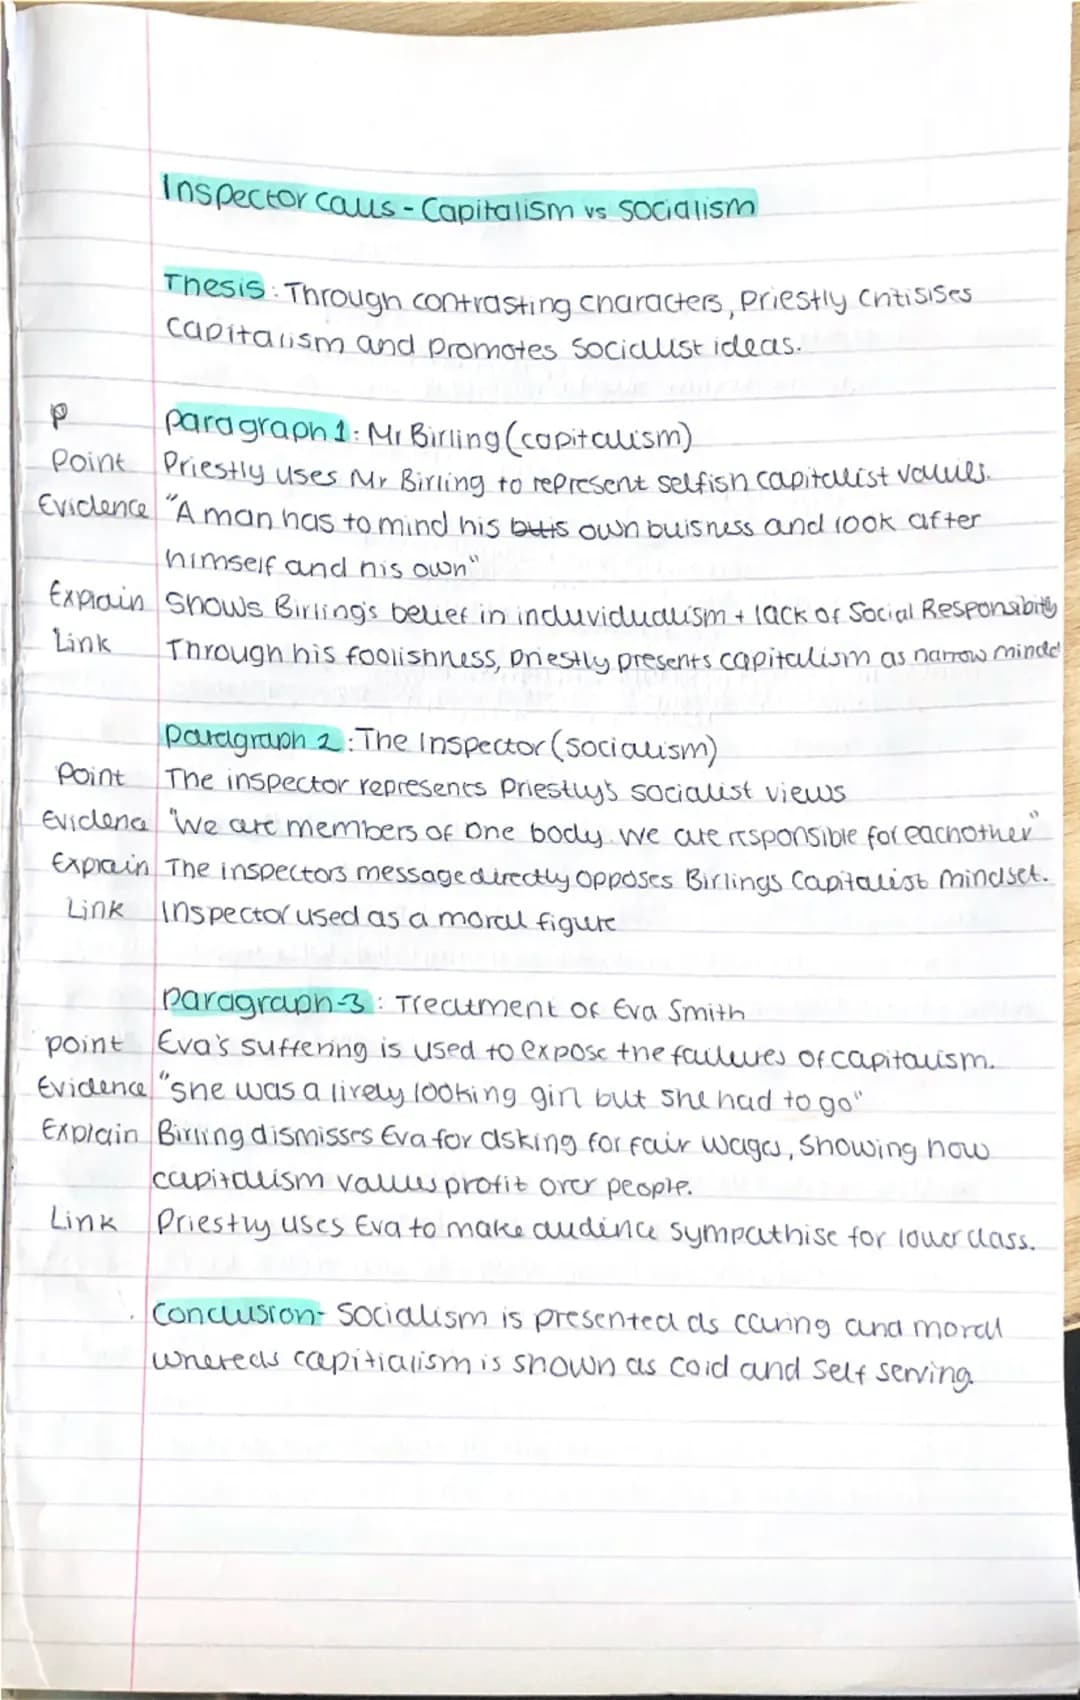 Inspector calls - Capitalism vs socialism
Thesis: Through contrasting characters, priestly critisises
capitalism and promotes socialist ideas.
P
paragraph 1: Mr Birling (capitalism)
Point Priestly uses Mr Birling to represent selfish capitalist values.
Evidence "A man has to mind his own buisness and look after
himself and his own"
Explain Shows Birling's belief in induvidualism + lack of Social Responsibity
Link Through his foolishness, priestly presents capitalism as narrow minded
paragraph 2: The Inspector (socialism)
Point The inspector represents Priestly's socialist views
Evidence "We are members of one body. We are responsible for eachother"
Explain The inspectors message directly opposes Birlings Capitalist mindset.
Link Inspector used as a moral figure
paragraph-3: Treatment of Eva Smith
point Eva's suffering is used to expose the failures of capitalism.
Evidence "she was a lively looking girl but she had to go"
Explain Birling dismisses Eva for asking for fair wages, showing how
capitalism values profit over people.
Link Priestly uses Eva to make audince sympathise for lower class.
Conclusion- Socialism is presented as caring and moral
whereas capitialism is shown as cold and self serving.